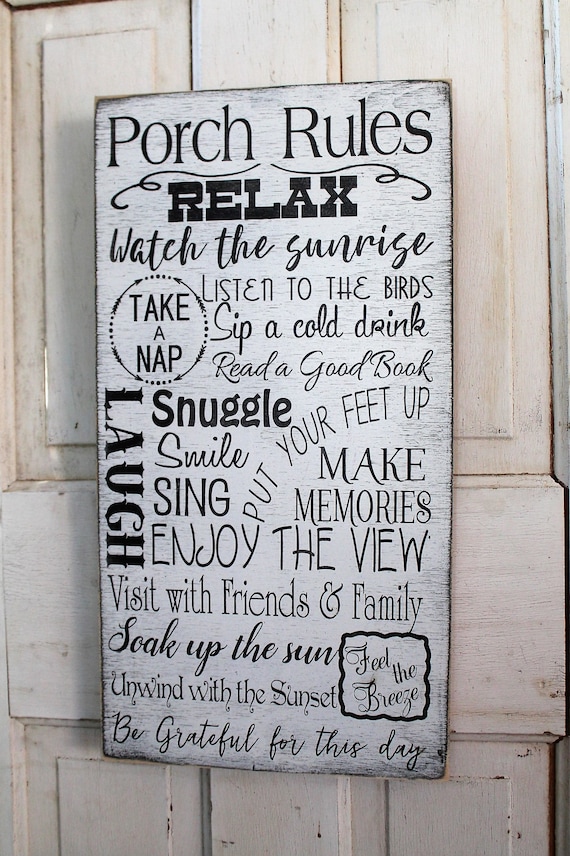 Porch Rules
RELAX
Watch the sunrise
TAKE
A
NAP
LISTEN TO THE BIRDS
Sip a cold drink
Read a Good Book
LAUGH
Snuggle
PUT YOUR FEET UP
Smile
MAKE
SING
MEMORIES
ENJOY THE VIEW
Visit with Friends & Family
Soak up the sun
Feel
the
Breeze
Unwind with the Sunset
Be Grateful for this day